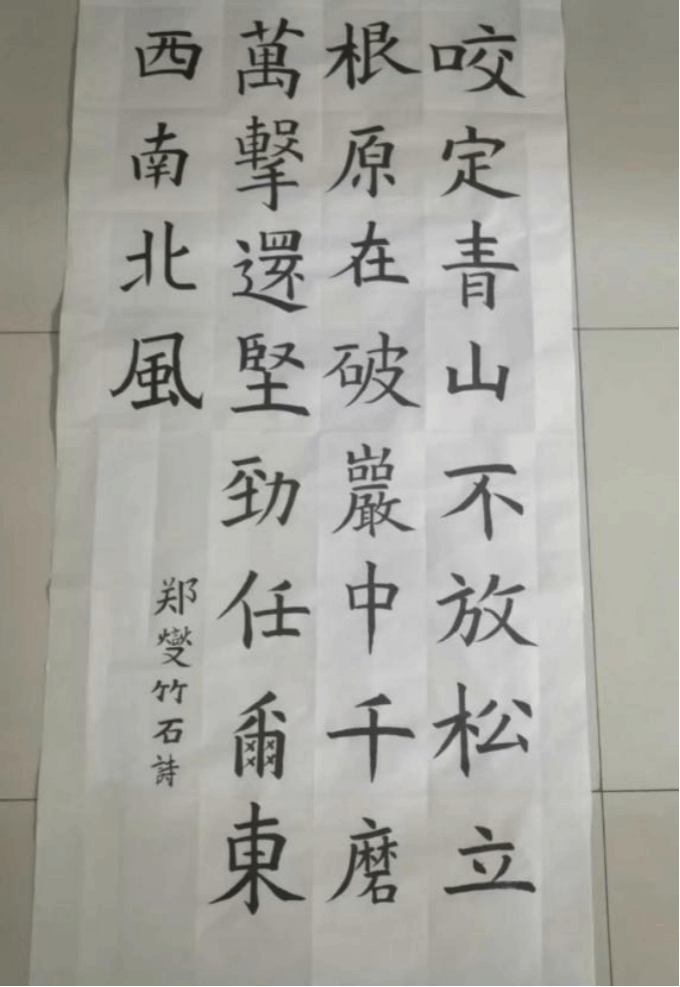 咬定青山不放松立
根原在破巖中千磨
萬擊還堅勁任爾東
西南北風
郑燮竹石詩